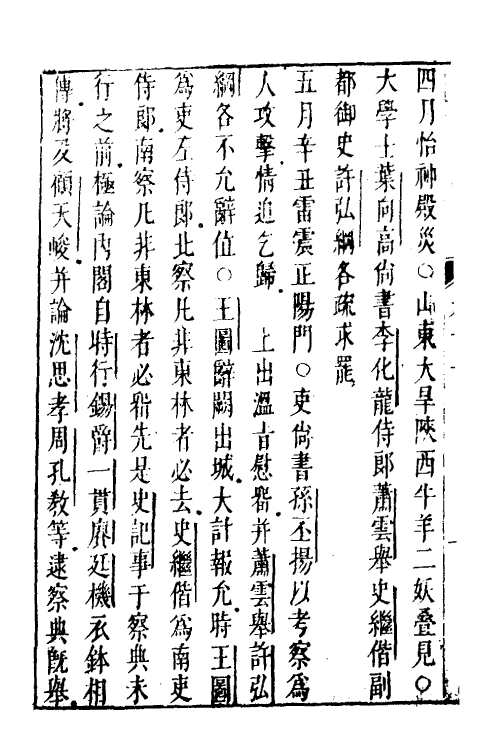 四月怡神殿災○山東大旱陝西牛羊二妖叠見○
大學士葉向高尚書李化龍侍郎蕭雲舉史繼偕副
都御史許弘綱各疏求罷
五月辛丑雷震正陽門○吏尚書孫丕揚以考察為
人攻擊情迫乞歸　上出溫旨慰留并蕭雲舉許弘
綱各不允辭值○王圖辭闕出城大計報允時王圖
為吏左侍郎北察凡非東林者必去史繼偕為南吏
侍郎南察凡非東林者必留先是史記事于察典未
行之前極論內閣自時行錫爵一貫廖廷機衣鉢相
傳將及顧天峻并論沈思孝周孔教等逮察典既舉